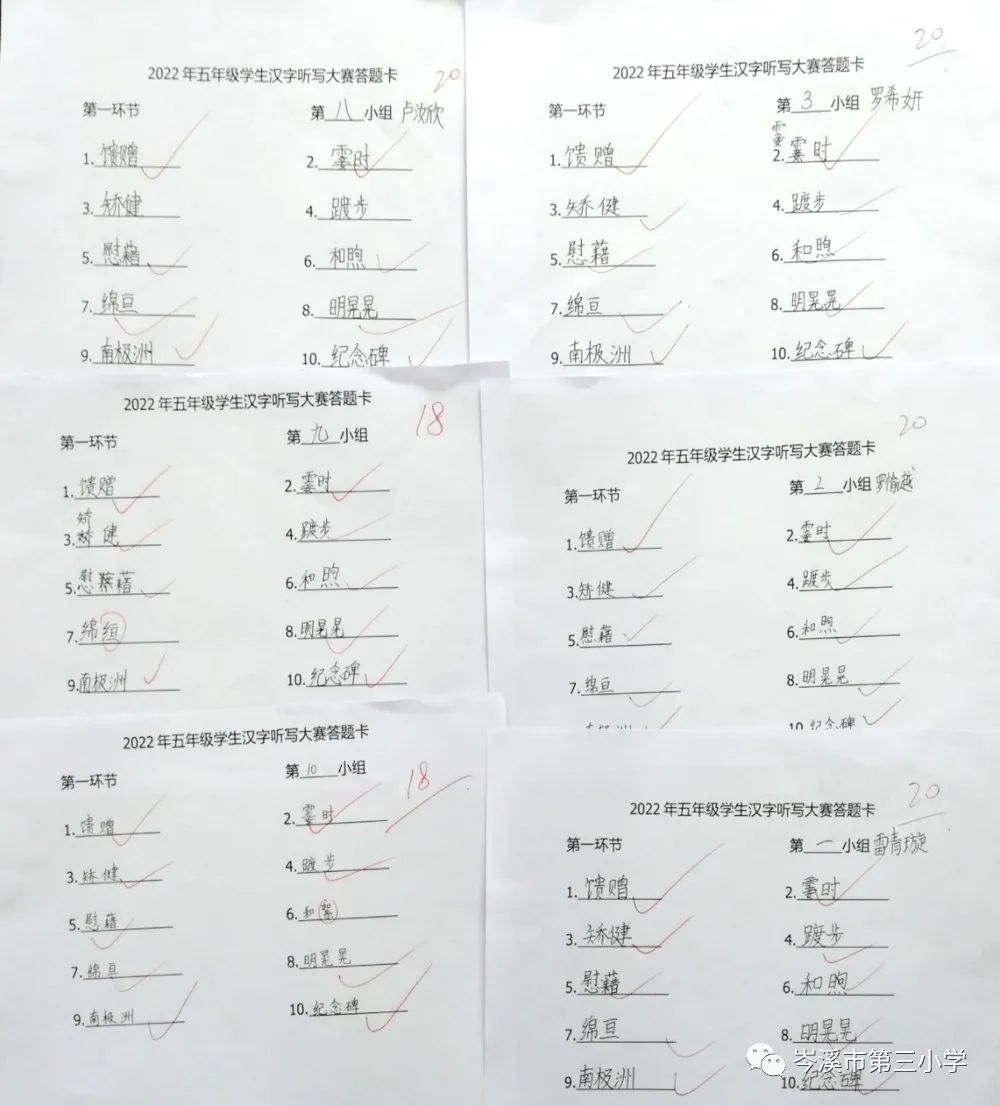 2022年五年级学生汉字听写大赛答题卡
20
第一环节 第八小组 卢汝欣
1. 馈赠 2. 霎时
3. 矫健 4. 踱步
5. 慰藉 6. 和煦
7. 绵亘 8. 明晃晃
9. 南极洲 10. 纪念碑
20
2022年五年级学生汉字听写大赛答题卡
第一环节 第3小组 罗希妍
霎
1. 馈赠 2. 霎时
3. 矫健 4. 踱步
5. 慰藉 6. 和煦
7. 绵亘 8. 明晃晃
9. 南极洲 10. 纪念碑
2022年五年级学生汉字听写大赛答题卡
18
第一环节 第九小组
1. 馈赠 2. 霎时
矫
3. 矫健 4. 踱步
5. 慰藉 6. 和煦
7. 绵 8. 明晃晃
9. 南极洲 10. 纪念碑
20
2022年五年级学生汉字听写大赛答题卡
第一环节 第2小组 罗愉越
1. 馈赠 2. 霎时
3. 矫健 4. 踱步
5. 慰藉 6. 和煦
7. 绵亘 8. 明晃晃
10. 纪念碑
2022年五年级学生汉字听写大赛答题卡
第一环节 第10小组
18
1. 馈赠 2. 霎时
3. 矫健 4. 踱步
5. 慰藉 6. 和
7. 绵亘 8. 明晃晃
9. 南极洲 10. 纪念碑
20
2022年五年级学生汉字听写大赛答题卡
第一环节 第一小组 雷青璇
1. 馈赠 2. 霎时
3. 矫健 4. 踱步
5. 慰藉 6. 和煦
7. 绵亘 8. 明晃晃
9. 南极洲 10. 纪念碑
岑溪市第三小学